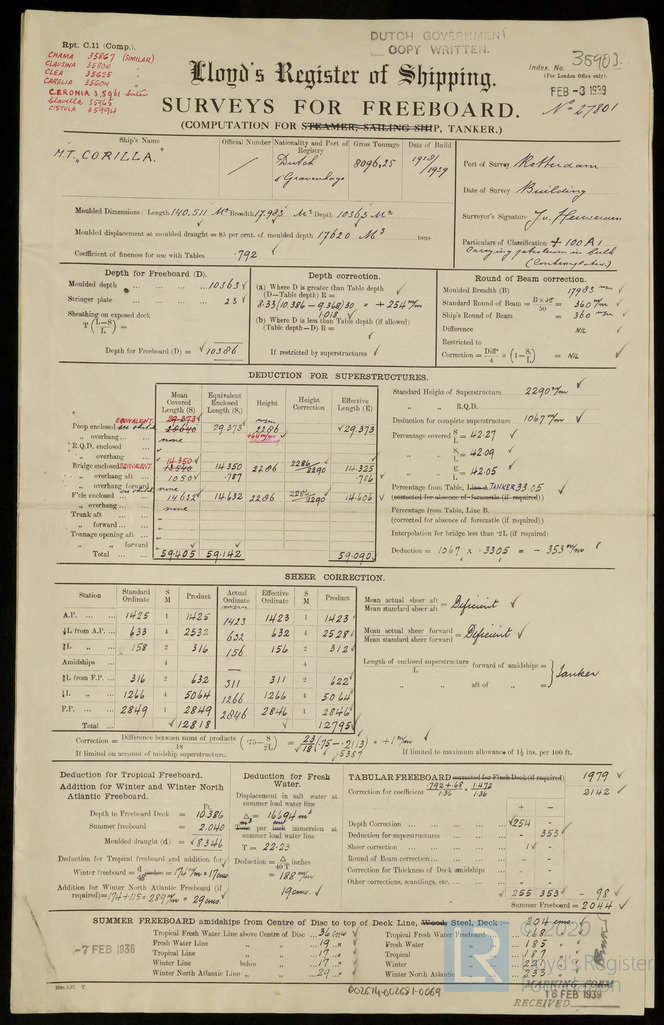 Rpt. C.11 (Comp.).
DUTCH GOVERNMENT
COPY WRITTEN.
CHAMA 35867 (SIMILAR)
CLAUSINA 35806 "
CLEA 35625 "
CARELIA 35604
CERONIA 35961 Sister
Clavella 35965
CISTULA 35994
Index. No. 35903.
(For London Office only).
FEB -3 1939
No 27801
Lloyd's Register of Shipping.
SURVEYS FOR FREEBOARD.
(COMPUTATION FOR STEAMER, SAILING SHIP, TANKER.)
Ship's Name
M.T. "CORILLA."
Official Number
Nationality and Port of Registry
Dutch
s'Gravenhage
Gross Tonnage
8096,25
Date of Build
1938/1939
Port of Survey Rotterdam
Date of Survey Building
Surveyor's Signature
Particulars of Classification + 100 A1
Carrying petroleum in bulk
(Contemplated)
Moulded Dimensions: Length 140.511 Breadth 17.983 Depth 10363
Moulded displacement at moulded draught = 85 per cent. of moulded depth 17620 M³ tons
Coefficient of fineness for use with Tables .792
Depth for Freeboard (D).
Moulded depth 10363
Stringer plate 23
Sheathing on exposed deck
T (L-S / L) =
Depth for Freeboard (D) = 10386
Depth correction.
(a) Where D is greater than Table depth
(D—Table depth) R =
8.33 (10.386 - 9.368) 30 = +254 m/m
1.018
(b) Where D is less than Table depth (if allowed)
(Table depth—D) R =
If restricted by superstructures
Round of Beam correction.
Moulded Breadth (B) 17983 m/m
Standard Round of Beam = B×12/50 = 360 m/m
Ship's Round of Beam = 360 m/m
Difference NIL
Restricted to
Correction = Diffce/4 × (1 - S₁/L) = NIL
DEDUCTION FOR SUPERSTRUCTURES.
Mean Covered Length (S) Equivalent Enclosed Length (S₁) Height Height Correction Effective Length (E)
EQUIVALENT 29.373
Poop enclosed 28640 29.373 2286 29.373
" overhang none
R.Q.D. enclosed "
" overhang "
14.350
Bridge enclosed EQUIVALENT 13540 14.350 2286 2286/2290 14.325
" overhang aft 1050 .787 .786
" overhang forward none
F'cle enclosed 14.632 14.632 2286 2286/2290 14.606
" overhang none
Trunk aft "
" forward "
Tonnage opening aft "
" " forward "
Total 59.405 59.142 59.090
Standard Height of Superstructure 2290 m/m
" " R.Q.D.
Deduction for complete superstructure 1067 m/m
Percentage covered S/L = 42.27
" " S₁/L = 42.09
" " E/L = 42.05
Percentage from Table, Line A TANKER 33.05
(corrected for absence of forecastle (if required))
Percentage from Table, Line B.
(corrected for absence of forecastle (if required))
Interpolation for bridge less than ·2L (if required)
Deduction = 1067 × .3305 = - 353 m/m
SHEER CORRECTION.
Station Standard Ordinate S M Product Actual Ordinate Effective Ordinate S M Product
A.P. 1425 1 1425 1423 1423 1 1423
⅙L from A.P. 633 4 2532 632 632 4 2528
⅓L " 158 2 316 156 156 2 312
Amidships 4 — 4
⅓L from F.P. 316 2 632 311 311 2 622
⅙L " 1266 4 5064 1266 1266 4 5064
F.P. 2849 1 2849 2846 2846 1 2846
Total 12818 12795
Mean actual sheer aft / Mean standard sheer aft = Deficient
Mean actual sheer forward / Mean standard sheer forward = Deficient
Length of enclosed superstructure forward of amidships = Tanker
L
" " aft of " =
Correction = Difference between sums of products / 18 (·75 - S/2L) = 23/18 (.75 - .2113) = +1 m/m
.5387
If limited on account of midship superstructure.
If limited to maximum allowance of 1½ ins. per 100 ft.
Deduction for Tropical Freeboard.
Addition for Winter and Winter North Atlantic Freeboard.
Ft.
Depth to Freeboard Deck = 10.386
Summer freeboard = 2.040
Moulded draught (d) = 8346
Deduction for Tropical freeboard and addition for
Winter freeboard = d/48 inches = 174 m/m = 17 cms
Addition for Winter North Atlantic Freeboard (if
required) = 174+115 = 289 m/m = 29 cms.
Deduction for Fresh Water.
Displacement in salt water at
summer load water line
Δ = 16694 m³
Tons per inch immersion at
summer load water line
T = 22.23
Deduction = Δ/40T inches
= 188 m/m
19 cms.
TABULAR FREEBOARD corrected for Flush Deck (if required) 1979
Correction for coefficient .792+.68/1.36 1.472/1.36 2142
+ -
Depth Correction 254
Deduction for superstructures 353
Sheer correction 1
Round of Beam correction
Correction for Thickness of Deck amidships
Other corrections, scantlings, etc.
255 353 - 98
Summer Freeboard = 2044
SUMMER FREEBOARD amidships from Centre of Disc to top of Deck Line, Wood, Steel, Deck: 204 cms.
Tropical Fresh Water Line above Centre of Disc 36 cms
Fresh Water Line " " 19 "
Tropical Line " " 17 "
Winter Line below " 17 "
Winter North Atlantic Line " " 29 "
Tropical Fresh Water Freeboard 168
Fresh Water " 185
Tropical " 187
Winter "
Winter North Atlantic " 233
-7 FEB 1939
002674-002681-0069
MARKING FORM
18 FEB 1939
RECEIVED
LR
© 2020
Lloyd's Register